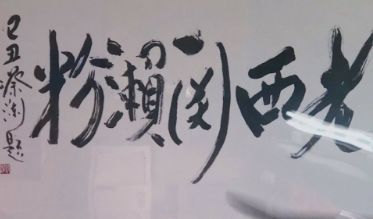 老西関瀨粉
己丑蔡瀾題